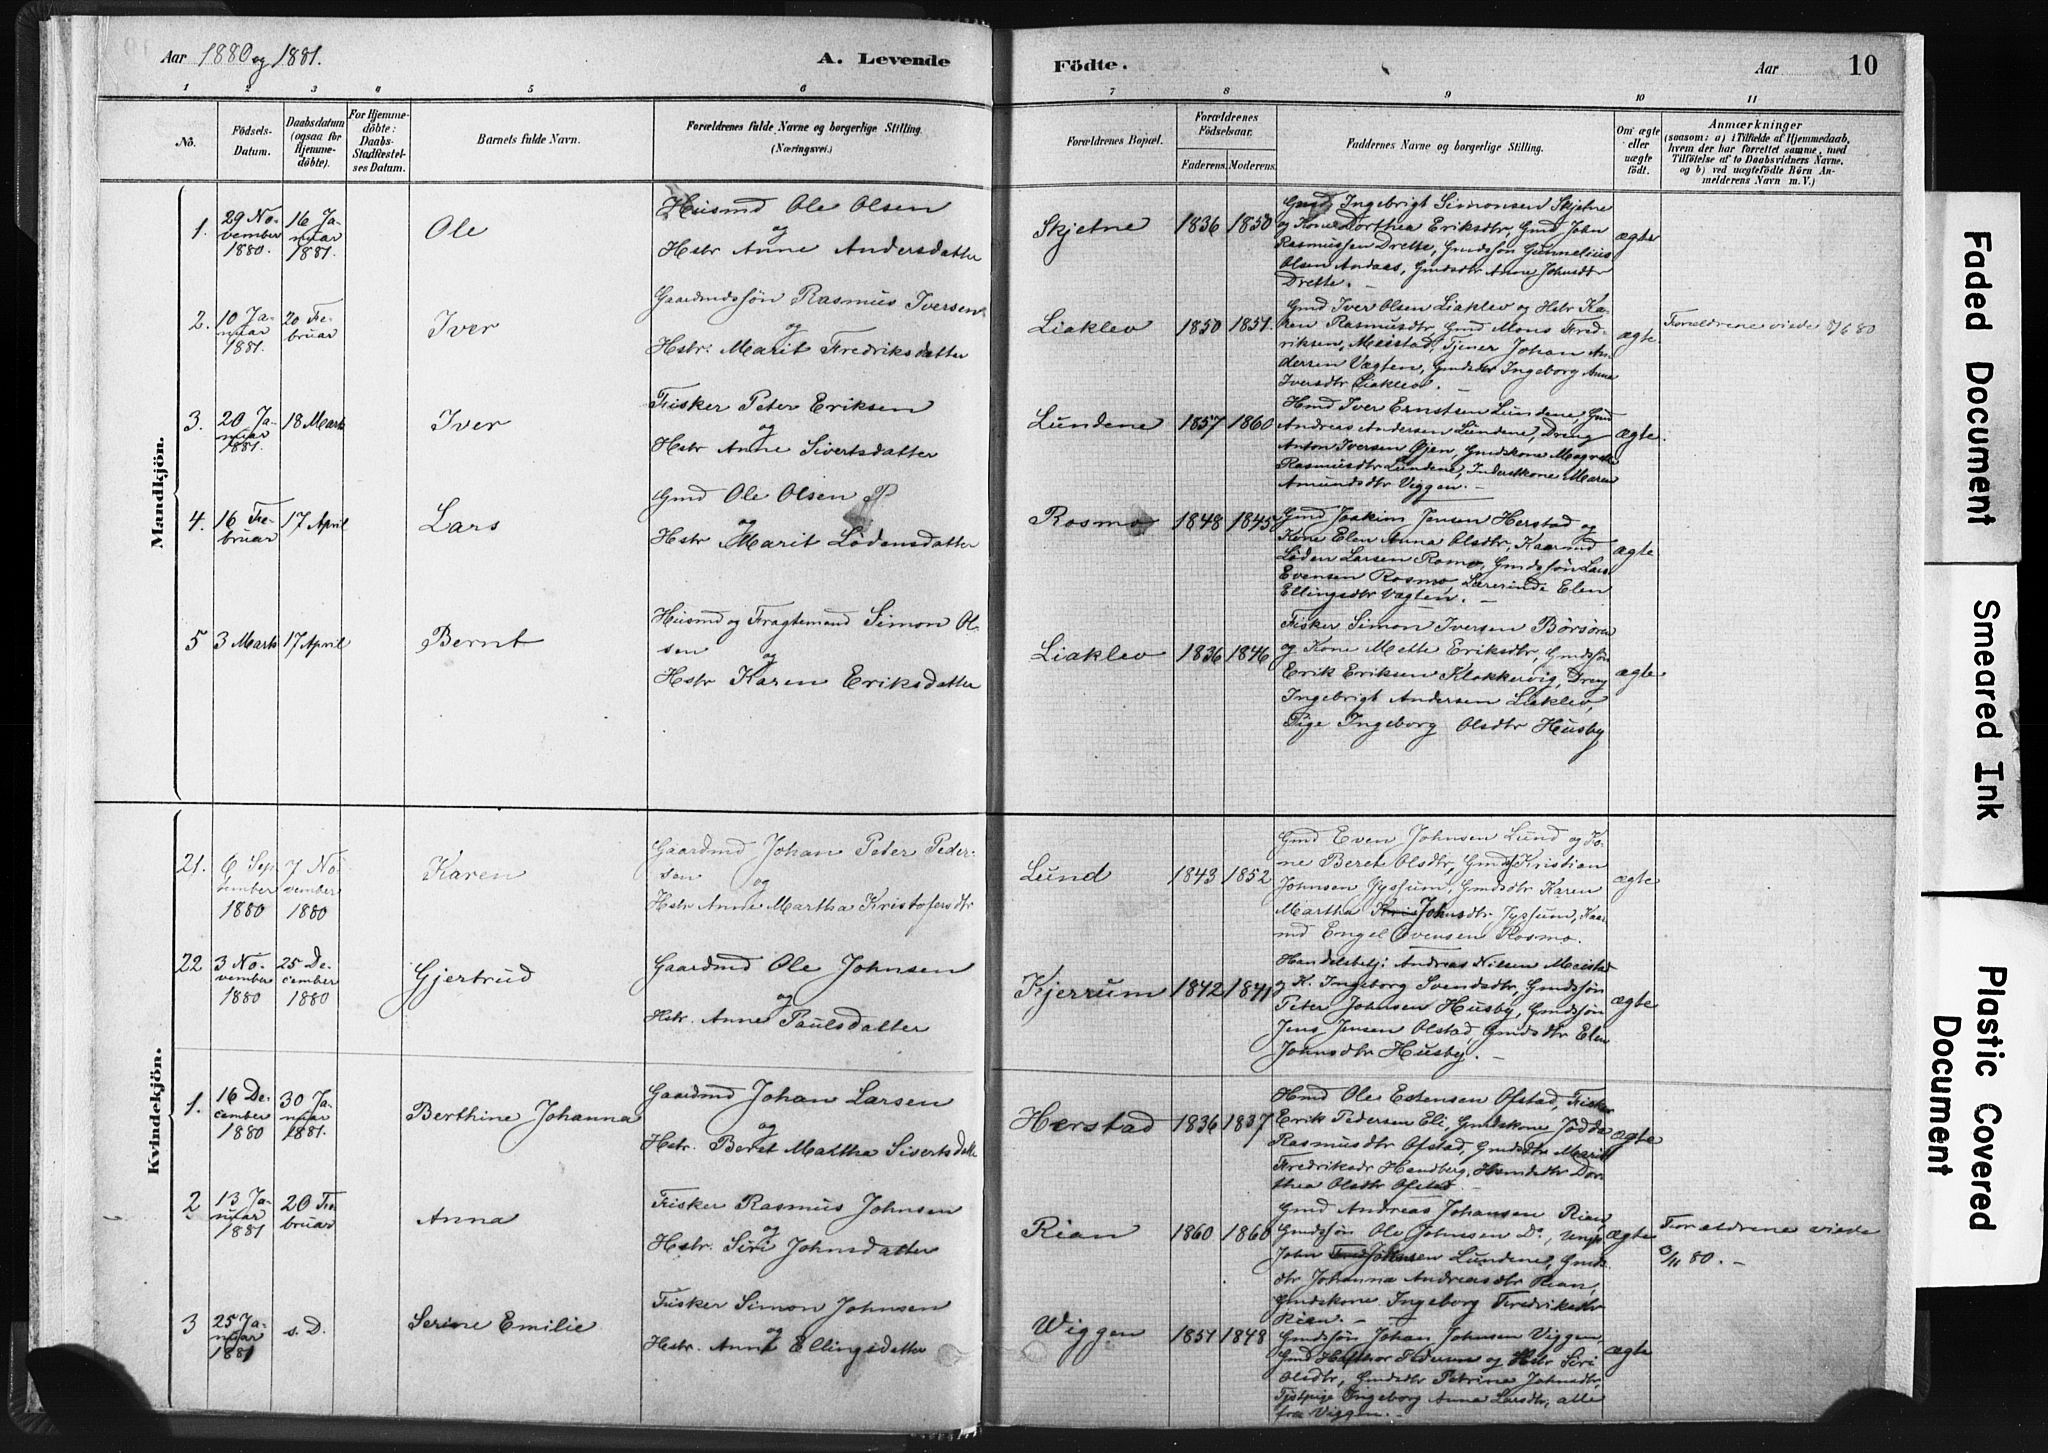 Aar 1880 og 1881.
A. Levende
Födte.
Aar
10
1 2 3 4 5 6 7 8 9 10 11
No.
Födsels-
Datum.
Daabsdatum
(ogsaa for
Hjemme-
döbte).
For Hjemme-
döbte:
Daabs-
Stadfæstel-
ses Datum.
Barnets fulde Navn.
Forældrenes fulde Navne og borgerlige Stilling.
(Næringsvei.)
Forældrenes Bopæl.
Forældrenes
Födselsaar.
Faderens. Moderens.
Faddernes Navne og borgerlige Stilling.
Om ægte
eller
uægte
födt.
Anmærkninger
(saasom: a) i Tilfælde af Hjemmedaab,
hvem der har forrettet samme, med
Tilföielse af to Daabsvidners Navne.
og b) ved uægtefödte Börn An-
melderens Navn m. V.)
Mandkjön.
1.
29 No-
vember
1880.
16 Ja-
nuar
1881.
Ole
Husmd Ole Olsen
og
Hstr Anne Andersdatter
Skjetne
1836 1850
Gmd Ingebrigt Simonsen Skjetne
og Kone Dorthea Eriksdtr, Gmd John
Rasmussen Drette, Gmdssön Gunnelius
Olsen Andaas, Gmdsdtr Anne Johnsdtr
Drette. –
ægte
2.
10 Ja-
nuar
1881.
20 Fe-
bruar
Iver
Gaardmdssjön Rasmus Iversen
og
Hstr: Marit Fredriksdatter
Liaklev
1850 1851.
Gmd Iver Olsen Liaklev og Hstr Ka-
ren Rasmusdtr, Gmd Mons Fred-
riksen, Meistad, Tjener Johan An-
dersen Vægten, Gmdsdtr Ingeborg Anna
Iversdtr Liaklev. –
ægte
Forældrene viede
80
3.
20 Ja-
nuar
1881.
18 Marts
Iver
Fisker Peter Eriksen
og
Hstr Anne Sivertsdatter
Lundene
1857 1860
Hmd Iver Ernstsen Lundene, Gmd
Andreas Andersen Lundene, Dreng
Anton Iversen Öjen, Gmdskone Magrete
Rasmusdtr Lundene, Inderstkone Maren
Amundsdtr Viggen. –
ægte.
4.
16 Fe-
bruar
17 April
Lars
Gmd Ole Olsen
og
Hstr Marit Lödensdatter
Rosmo
1848 1845
Gmd Joakim Jensen Herstad og
Kone Elen Anna Olsdtr, Kaarmd
Löden Larsen Romo, Gmdssön Lars
Evensen Rosmo, Lærerinde Elen
Ellingsdtr Vægten. –
ægte
5
3 Marts
17 April
Bernt
Husmd og Fragtemand Simon Ol-
sen
og
Hstr Karen Eriksdatter
Liaklev
1836 1846
Fisker Simon Iversen Börsören
og Kone Mette Eriksdtr, Gmdssön
Erik Eriksen Klokkervig, Dreng
Ingebrigt Andersen Liaklev,
Pige Ingeborg Olsdtr Husby
ægte
Kvindekjön.
21.
6 Sep
tember
1880
7 No-
vember
1880
Karen
Gaardmd Johan Peter Peder-
sen
og
Hstr Anne Martha Kristofersdtr
Lund
1843 1852
Gmd Even Johnsen Lund og Ko-
ne Beret Olsdtr, Gmds Kristian
Johnsen Jyssum, Gmdsdtr Karen
Martha Johnsdtr Jyssum, Kaar-
md Engel Svensen Rosmo.
ægte
22
3 No-
vember
1880
25 De-
cember
1880
Gjertrud
Gaardmd Ole Johnsen
og
Hstr. Anne Paulsdatter
Kjerrum
1842 1841
Handelsbetj: Andreas Nilsen Meistad
og K. Ingeborg Svendsdtr, Gmdssjön
Peter Johnsen Husby, Gmdssjön
Jens Jensen Olstad, Gmdsdtr Elen
Johnsdtr Husby. –
ægte
1.
16 De-
cember
1880
30 Ja-
nuar
1881.
Berthine Johanna
Gaardmd Johan Larsen
og
Hstr. Beret Martha Sivertsdatte
Herstad
1836 1837
Hmd Ole Estensen Ofstad, Fisker
Erik Pedersen Eli, Gmdskone Jödda
Rasmusdtr Ofstad, Gmdsdtr Marit
Fredriksdr Handberg, Hsmdsdtr Dor-
thea Olsdtr Ofstad. –
ægte
2
13 Ja-
nuar
1881
20 Fe-
bruar
Anna
Fisker Rasmus Johnsen
og
Hstr. Siri Johnsdatter
Rian
1860 1860
Gmd Andreas Johansen Rian,
Gmdssjön Ole Johnsen Do, Ungk
John Johnsen Lundene, Gmds-
dtr Johanna Andreasdtr Rian,
Gmdskone Ingeborg Fredriksdtr
Rian. –
ægte
Forældrene viede
/11 80. –
3
25 Ja-
nuar
1881
s. D.
Serine Emilie
Fisker Simon Johnsen
og
Hstr. Anne Ellingsdatter
Wiggen
1851 1848
Gmdssjön Johan Johnsen Viggen,
Gmd Halthor Pedersen og Hstr Siri
Olsdtr, Gmdsdtr Petrine Johnsdtr
Tjstpige Ingeborg Anna Larsdtr, alle
fra Viggen. –
ægte
Faded Document
Smeared Ink
Plastic Covered
Document